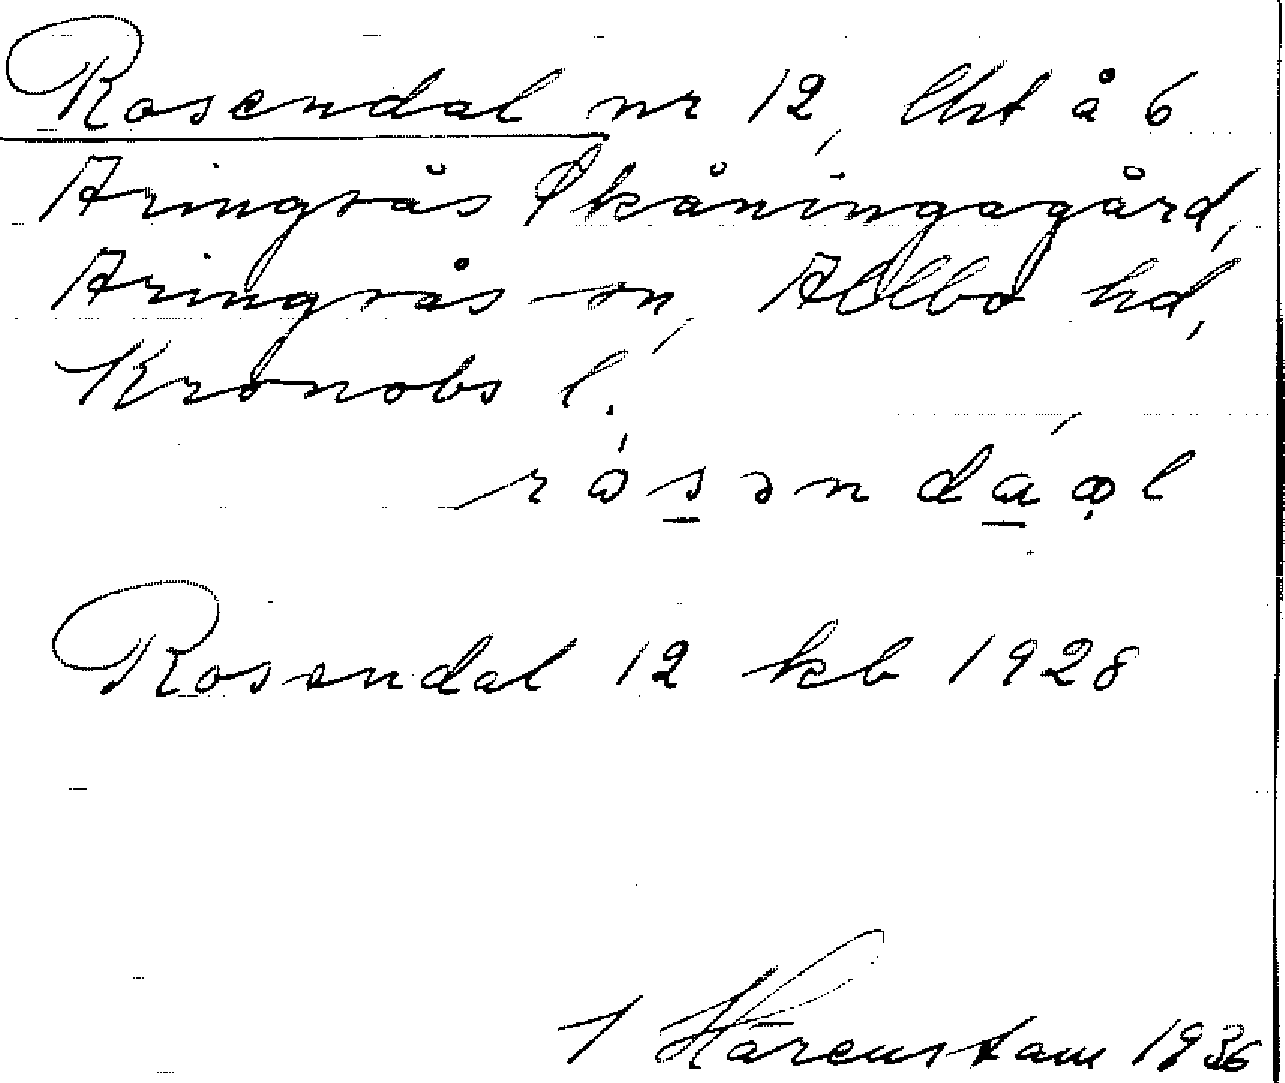 Rosendal nr 12, lht å 6
Aringsås Skåningagård,
Aringsås sn, Allbo hd,
Kronobs l.
rósəndáɷl
Rosendal 12 kb 1928
Härenstam 1936